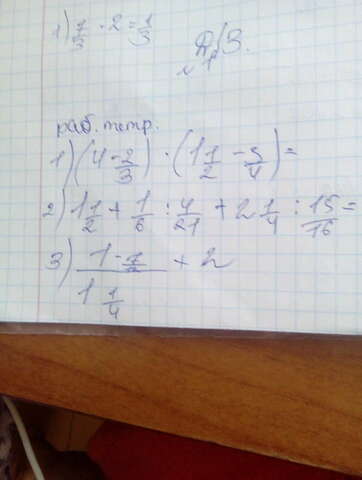 Д/З.
№1
раб. тетр.
1) (4 - 2/3) · (1 1/2 - 3/4) =
2) 1 1/2 + 1/6 : 4/21 + 2 1/4 : 15/16 =
3) 1 - / 1 1/4 + 2